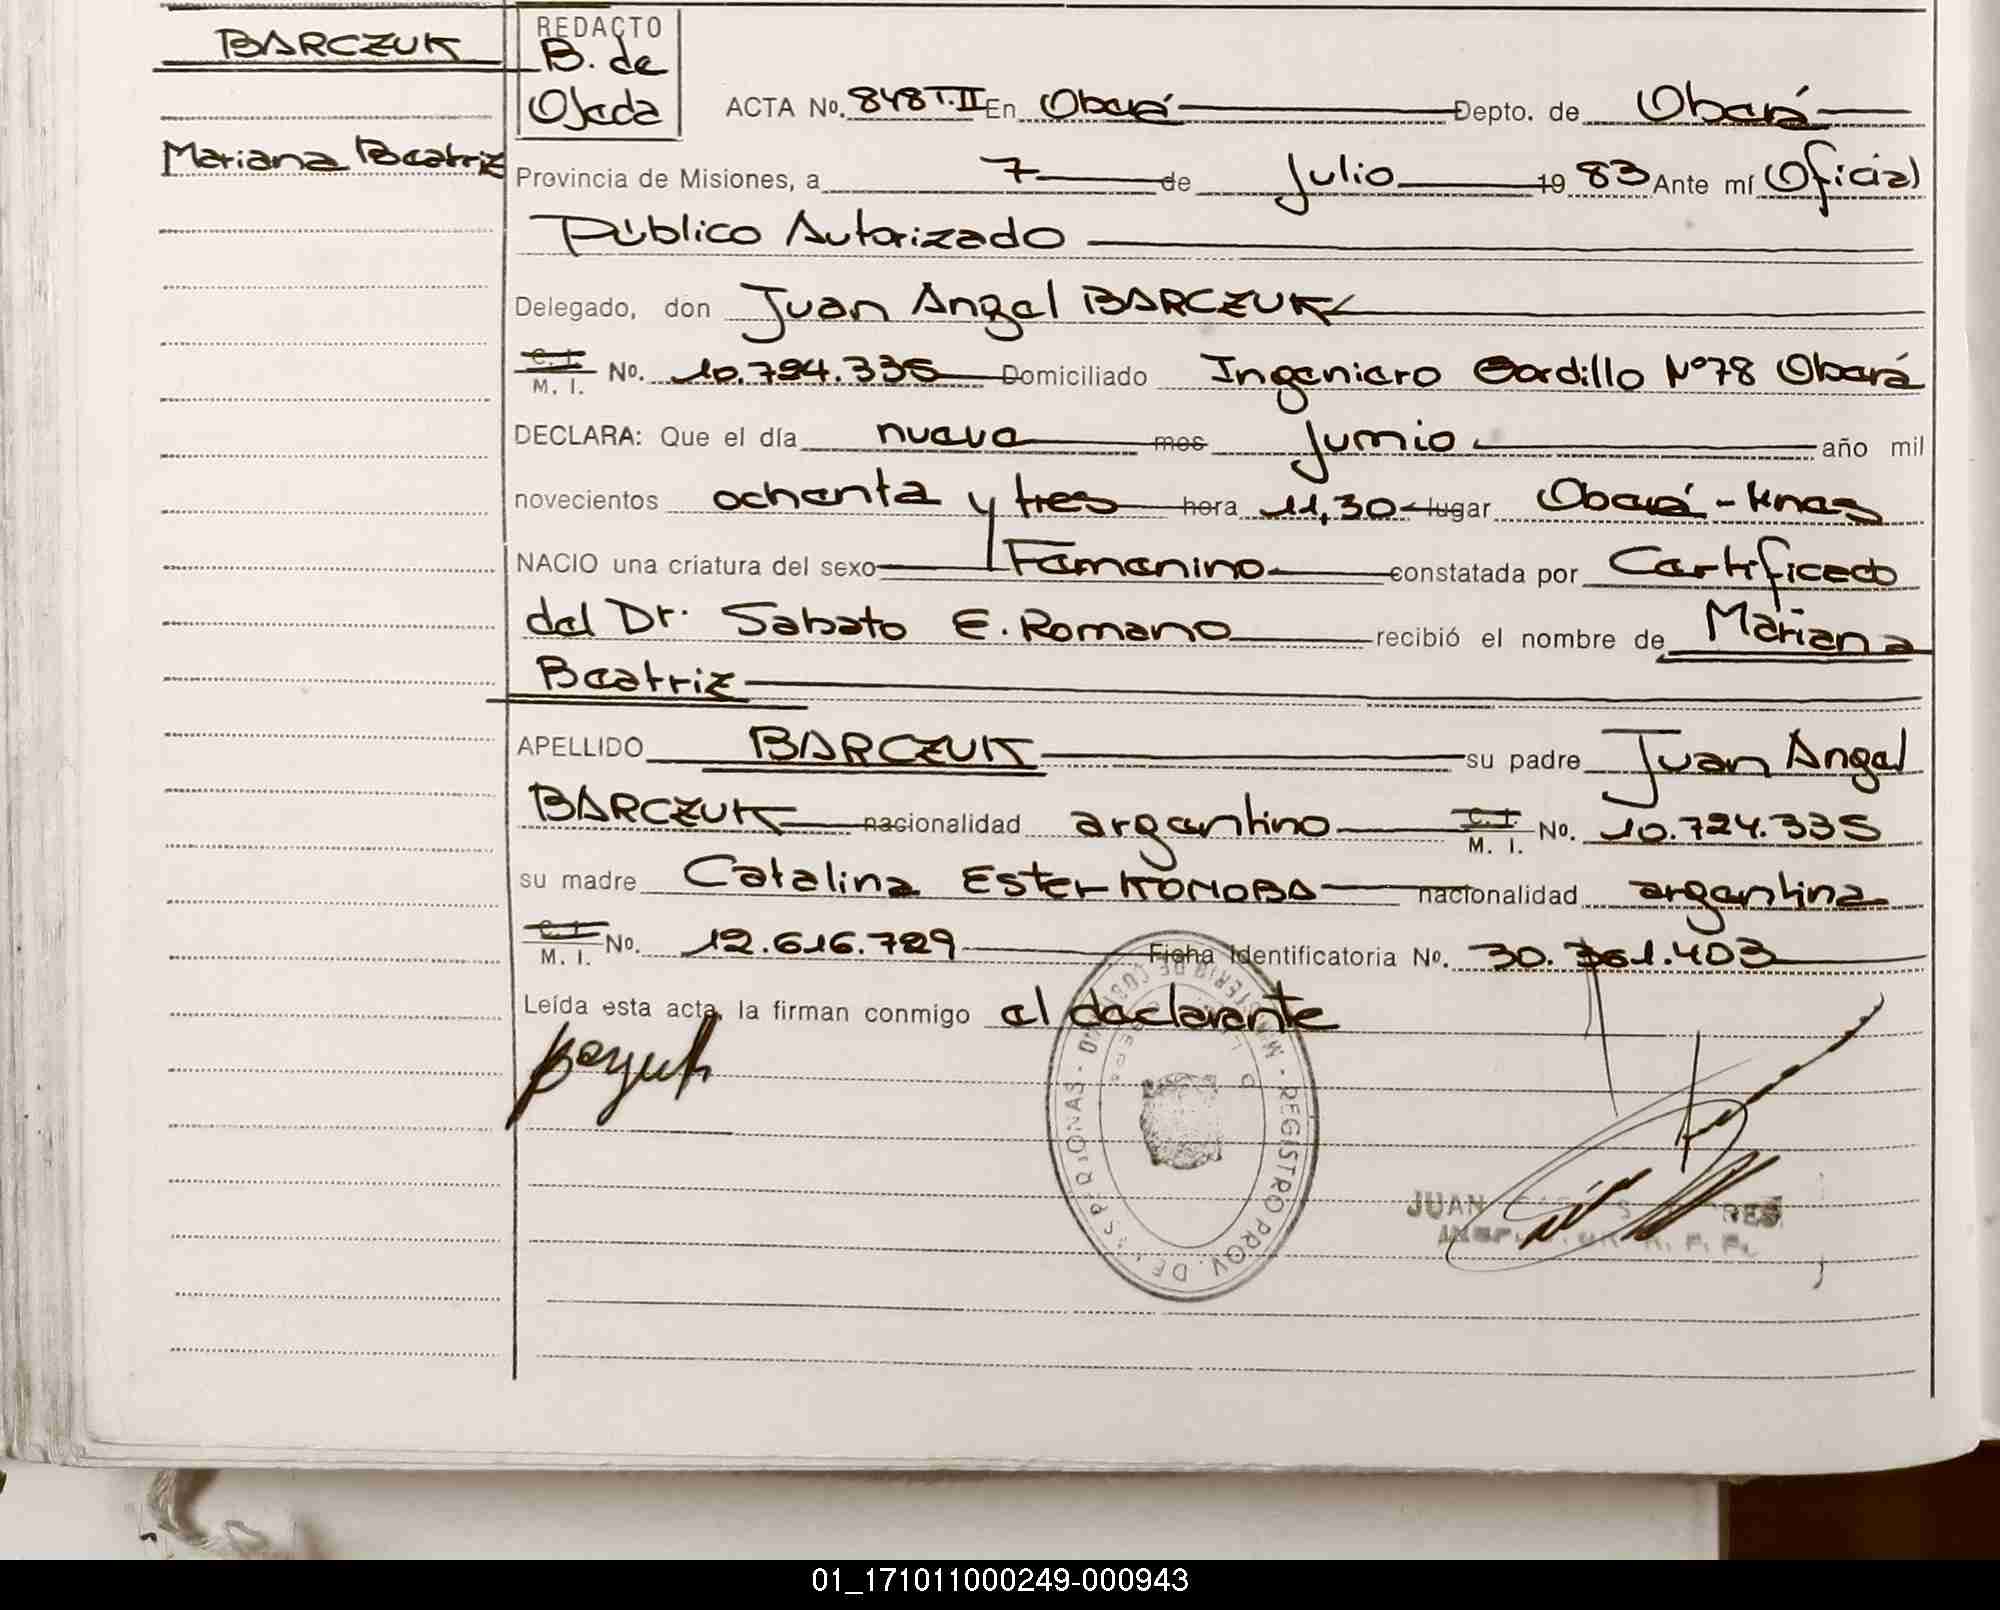 BARCZUK
Mariana Beatriz
REDACTO
B. de
Ojeda
ACTA No. 848 T.II En Oberá Depto. de Oberá
Provincia de Misiones, a 7 de Julio 19 83 Ante mí Oficial
Público Autorizado
Delegado, don Juan Angel BARCZUK
C. I. M. I. No. 10.724.335 Domiciliado Ingeniero Gordillo Nº78 Oberá
DECLARA: Que el día nueve mes Junio año mil
novecientos ochenta y tres hora 11,30 lugar Oberá - Mnes
NACIO una criatura del sexo Femenino constatada por Certificado
del Dr. Sabato E. Romano recibió el nombre de Mariana
Beatriz
APELLIDO BARCZUK su padre Juan Angel
BARCZUK nacionalidad argentino C. I. M. I. No. 10.724.335
su madre Catalina Ester KOMOBA nacionalidad argentina
C. I. M. I. No. 12.616.729 Ficha Identificatoria No. 30.361.403
Leída esta acta, la firman conmigo el declarante
REGISTRO PROV. DE
JUAN
01_171011000249-000943